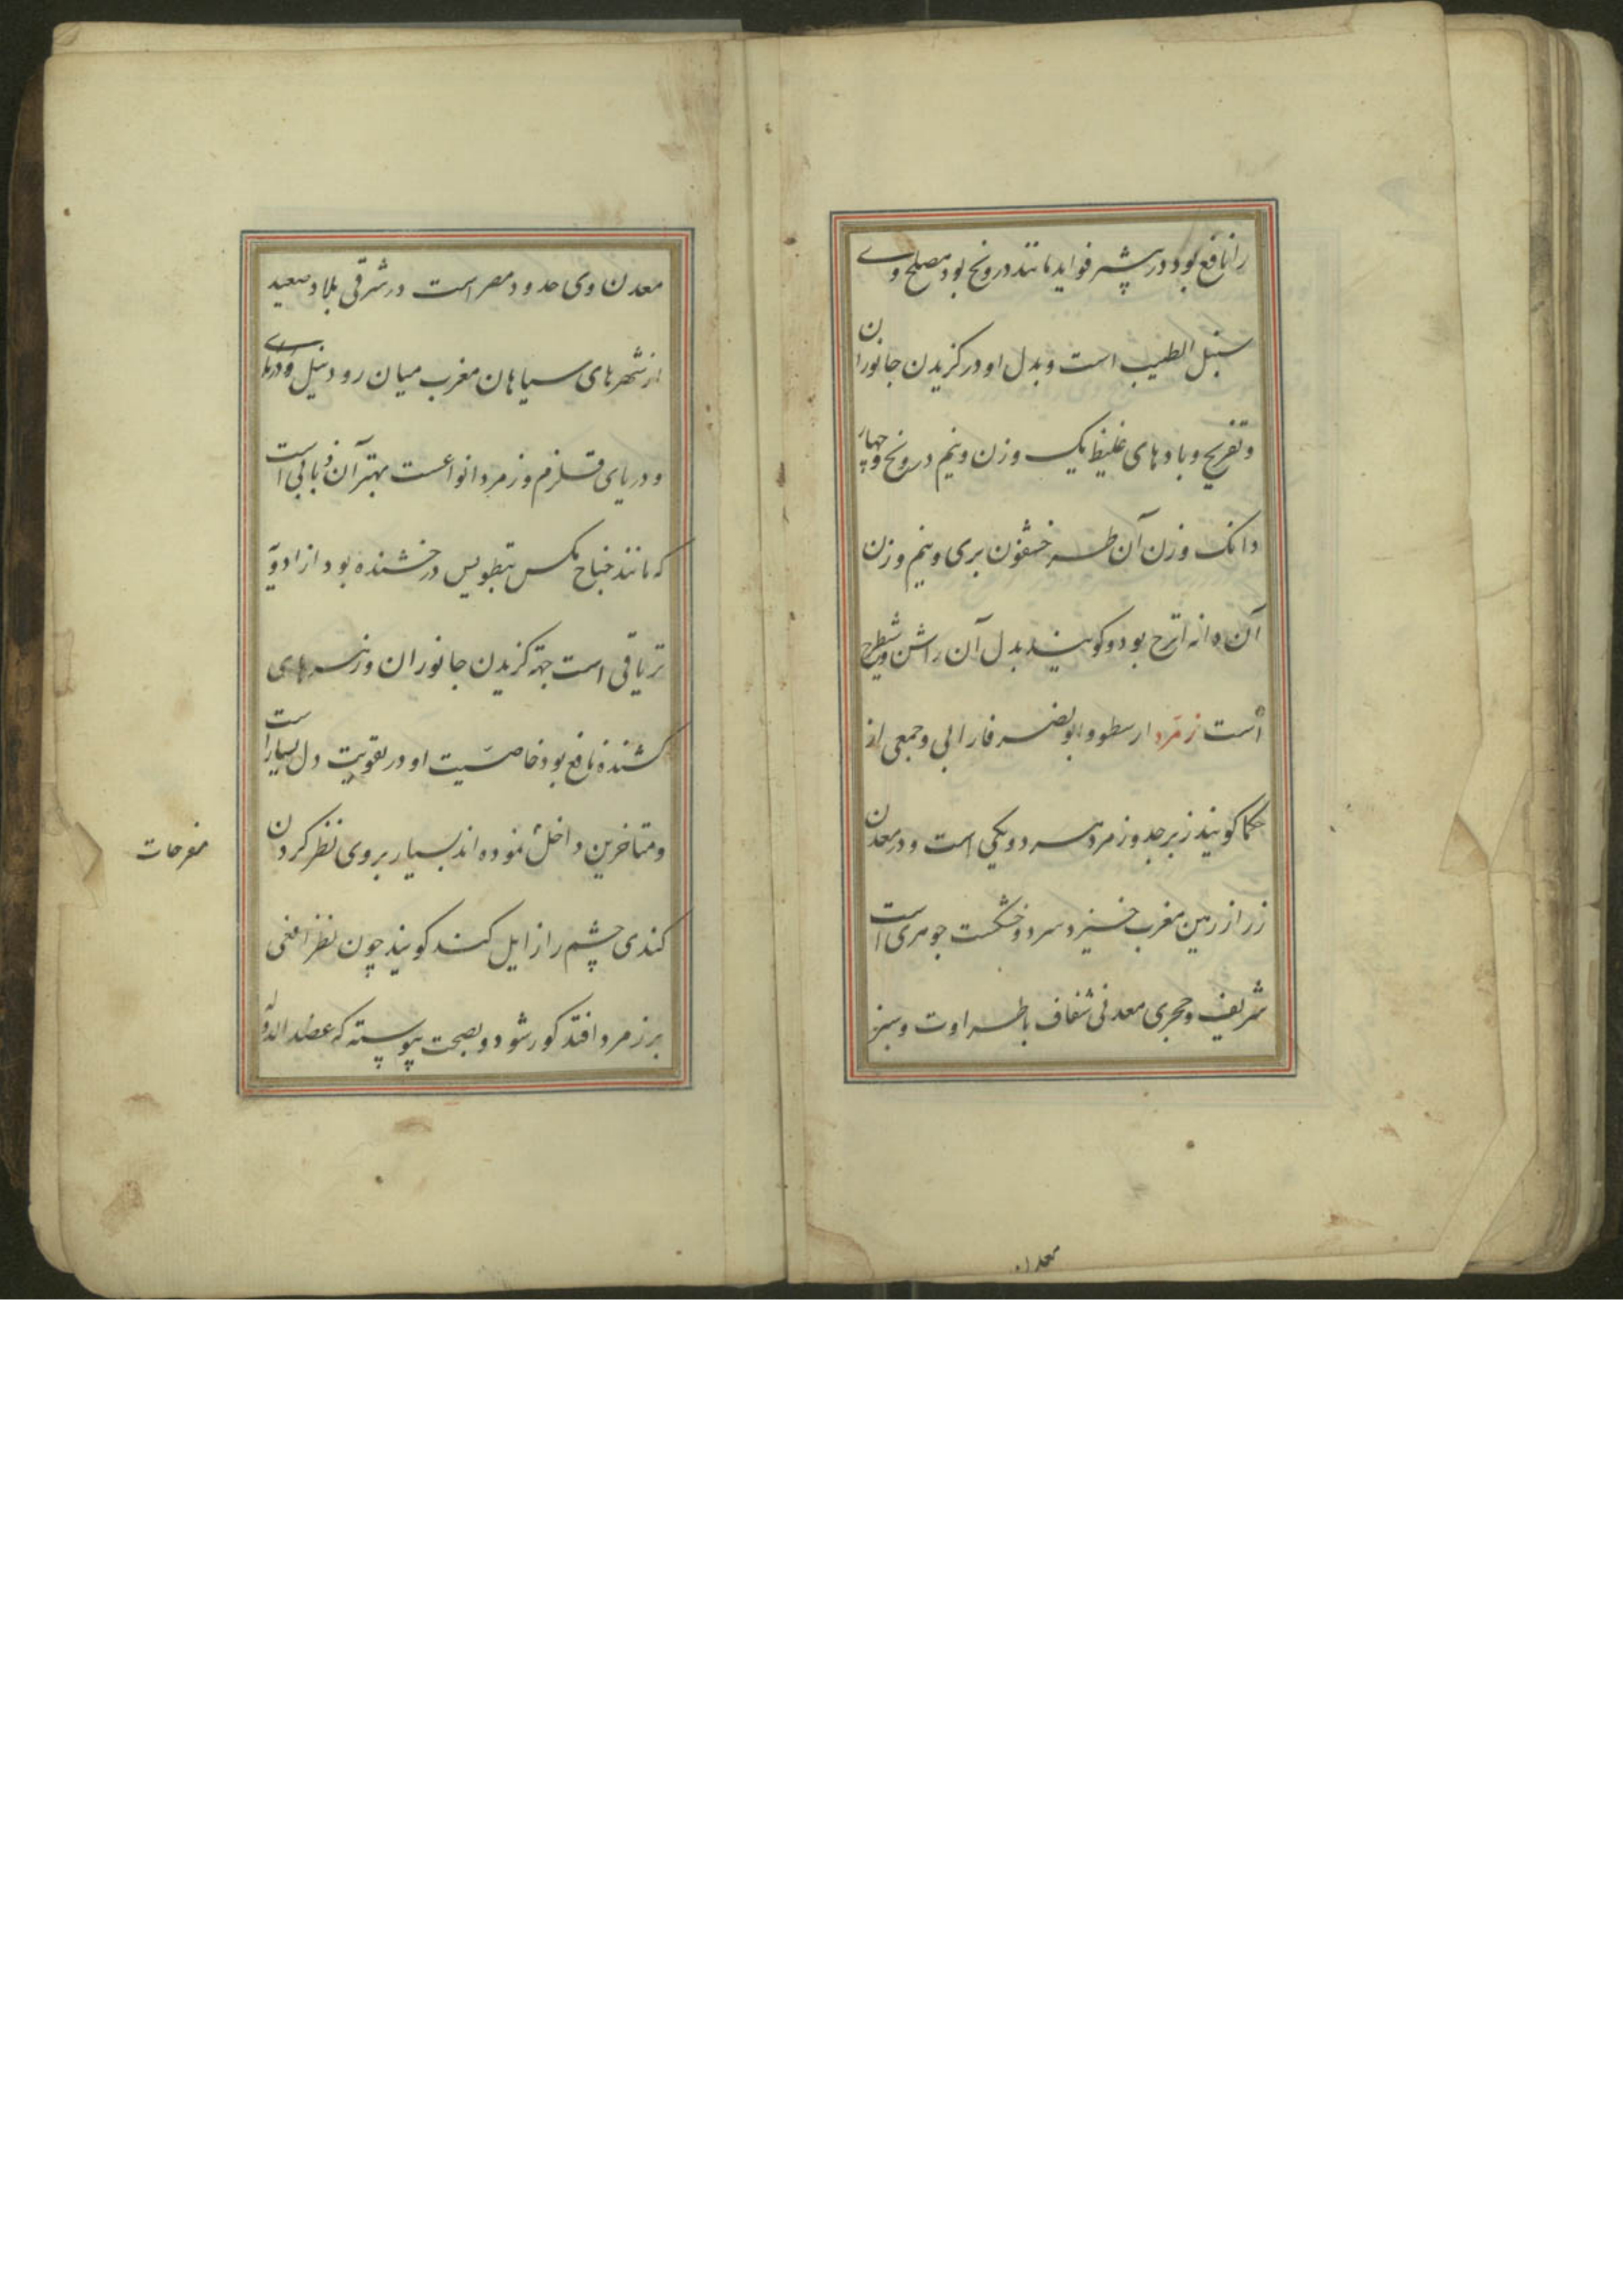 را نافع بود و در بیشتر فواید مانند درونج بود مصلح وی
سنبل الطیب است و بدل او در کزیدن جانوران
و تفریح و بادهای غلیظ یک وزن و نیم درونج و چهار
دانک وزن آن طرخشقون بری و نیم وزن
آن دانه اترج بود و کویند بدل آن راشن و شیطرج
است زمرد ارسطو و ابونصر فارابی و جمعی از
حکما کویند زبرجد و زمرد هر دو یکی است و در معدن
زر از زمین مغرب خیزد سرد و خشکست جوهری است
شریف و حجری معدنی شفاف با طراوت و سبز
معدن
معدن وی حدود مصر است در شرقی بلاد صعید
از شهرهای سیاهان مغرب میان رود نیل و دریای
و دریای قلزم و زمرد انواعست بهتر آن ذبابی است
که مانند جناح مکس درخشنده بود از ادویه
تریاقی است جهة کزیدن جانوران و زهرهای
کشنده نافع بود خاصیت او در تقویت دل بسیار است
و متاخرین داخل نموده اند بسیار بر وی نظر کردن
مفرحات
کندی چشم را زایل کند کویند چون نظر افعی
بر زمرد افتد کور شود و بصحت پیوسته که عضد الدوله